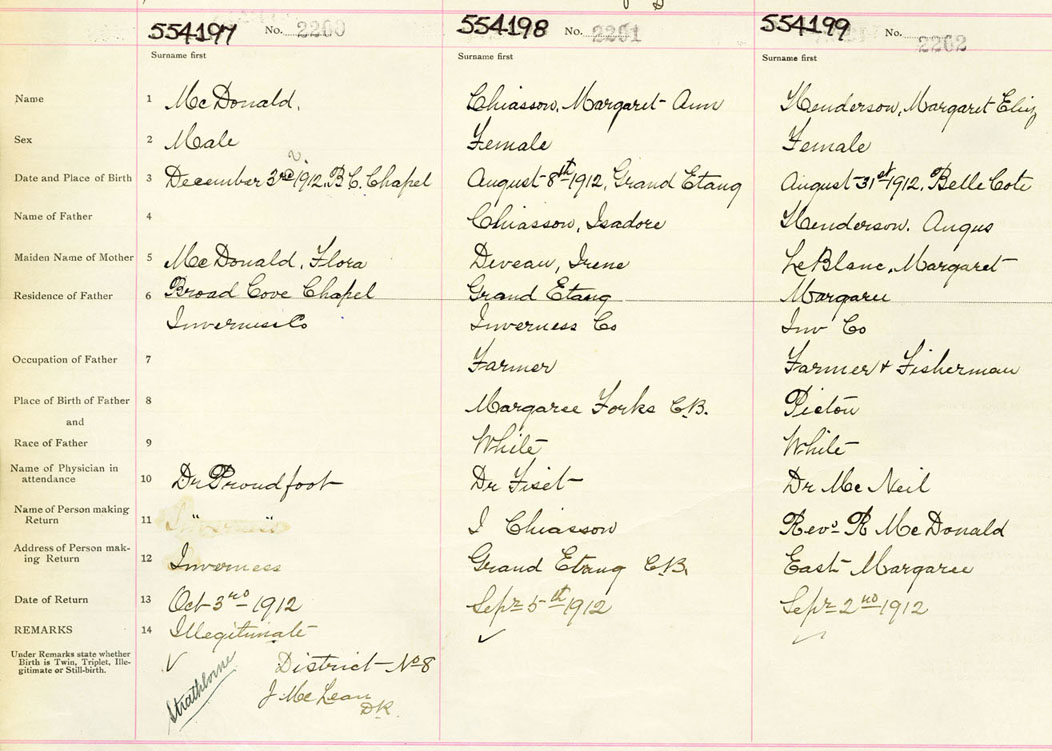 554197 No. 2260 554198 No. 2261 554199 No. 2262
Surname first Surname first Surname first
Name 1 McDonald. Chiasson, Margaret Ann Henderson, Margaret Eliz
Sex 2 Male Female Female
Date and Place of Birth 3 December 3rd 1912. B. C. Chapel August 8th 1912, Grand Etang August 31st 1912, Belle Cote
Name of Father 4 Chiasson, Isadore Henderson. Angus
Maiden Name of Mother 5 McDonald, Flora Deveau, Irene LeBlanc, Margaret
Residence of Father 6 Broad Cove Chapel Grand Etang Margaree
Inverness Co Inverness Co Inv Co
Occupation of Father 7 Farmer Farmer & Fisherman
Place of Birth of Father 8 Margaree Forks C.B. Pictou
and
Race of Father 9 White White
Name of Physician in
attendance 10 Dr Proudfoot Dr Fiset Dr McNeil
Name of Person making
Return 11 " " I Chiasson Revd R McDonald
Address of Person mak-
ing Return 12 Inverness Grand Etang C.B. East Margaree
Date of Return 13 Oct 3rd 1912 Sept 5th 1912 Sept 2nd 1912
REMARKS 14 Illegitimate
Under Remarks state whether
Birth is Twin, Triplet, Ille-
gitimate or Still-birth.
Strathlorne
District No 8
J McLean
DR.